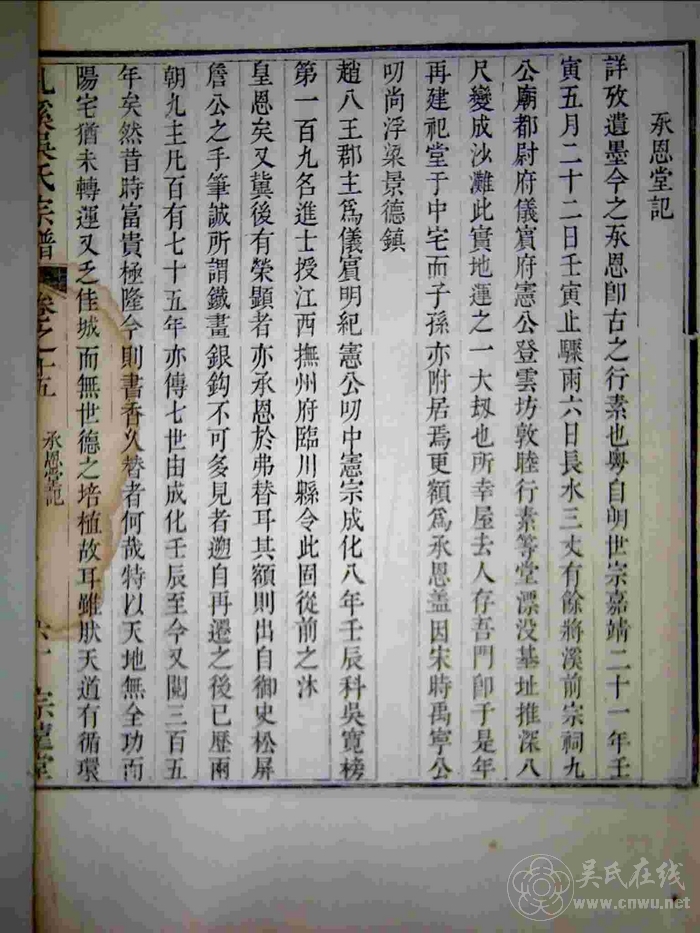 承恩堂記
詳攷遺墨今之承恩卽古之行素也粵自明世宗嘉靖二十一年壬
寅五月二十二日壬寅止驟雨六日長水三丈有餘將溪前宗祠九
公廟都尉府儀賓府憲公登雲坊敦睦行素等堂漂没基址推深八
尺變成沙灘此實地運之一大刼也所幸屋去人存吾門卽于是年
再建祀堂于中宅而子孫亦附居焉更額爲承恩盖因宋時禹寧公
叨尚浮梁景德鎮
趙八王郡主爲儀賓明紀憲公叨中憲宗成化八年壬辰科吳寛榜
第一百九名進士授江西撫州府臨川縣令此固從前之沐
皇恩矣又冀後有榮顯者亦承恩於弗替耳其額則出自御史松屏
詹公之手筆誠所謂鐵畫銀鈎不可多見者遡自再遷之後已歷兩
朝九主凡百有七十五年亦傳七世由成化壬辰至今又閱三百五
年矣然昔時富貴極隆今則書香久替者何哉特以天地無全功而
陽宅猶未轉運又乏佳城而無世德之培植故耳雖肰天道有循環
溪吳氏宗譜
卷之十五
承恩堂記
吴氏在线
www.cnwu.net